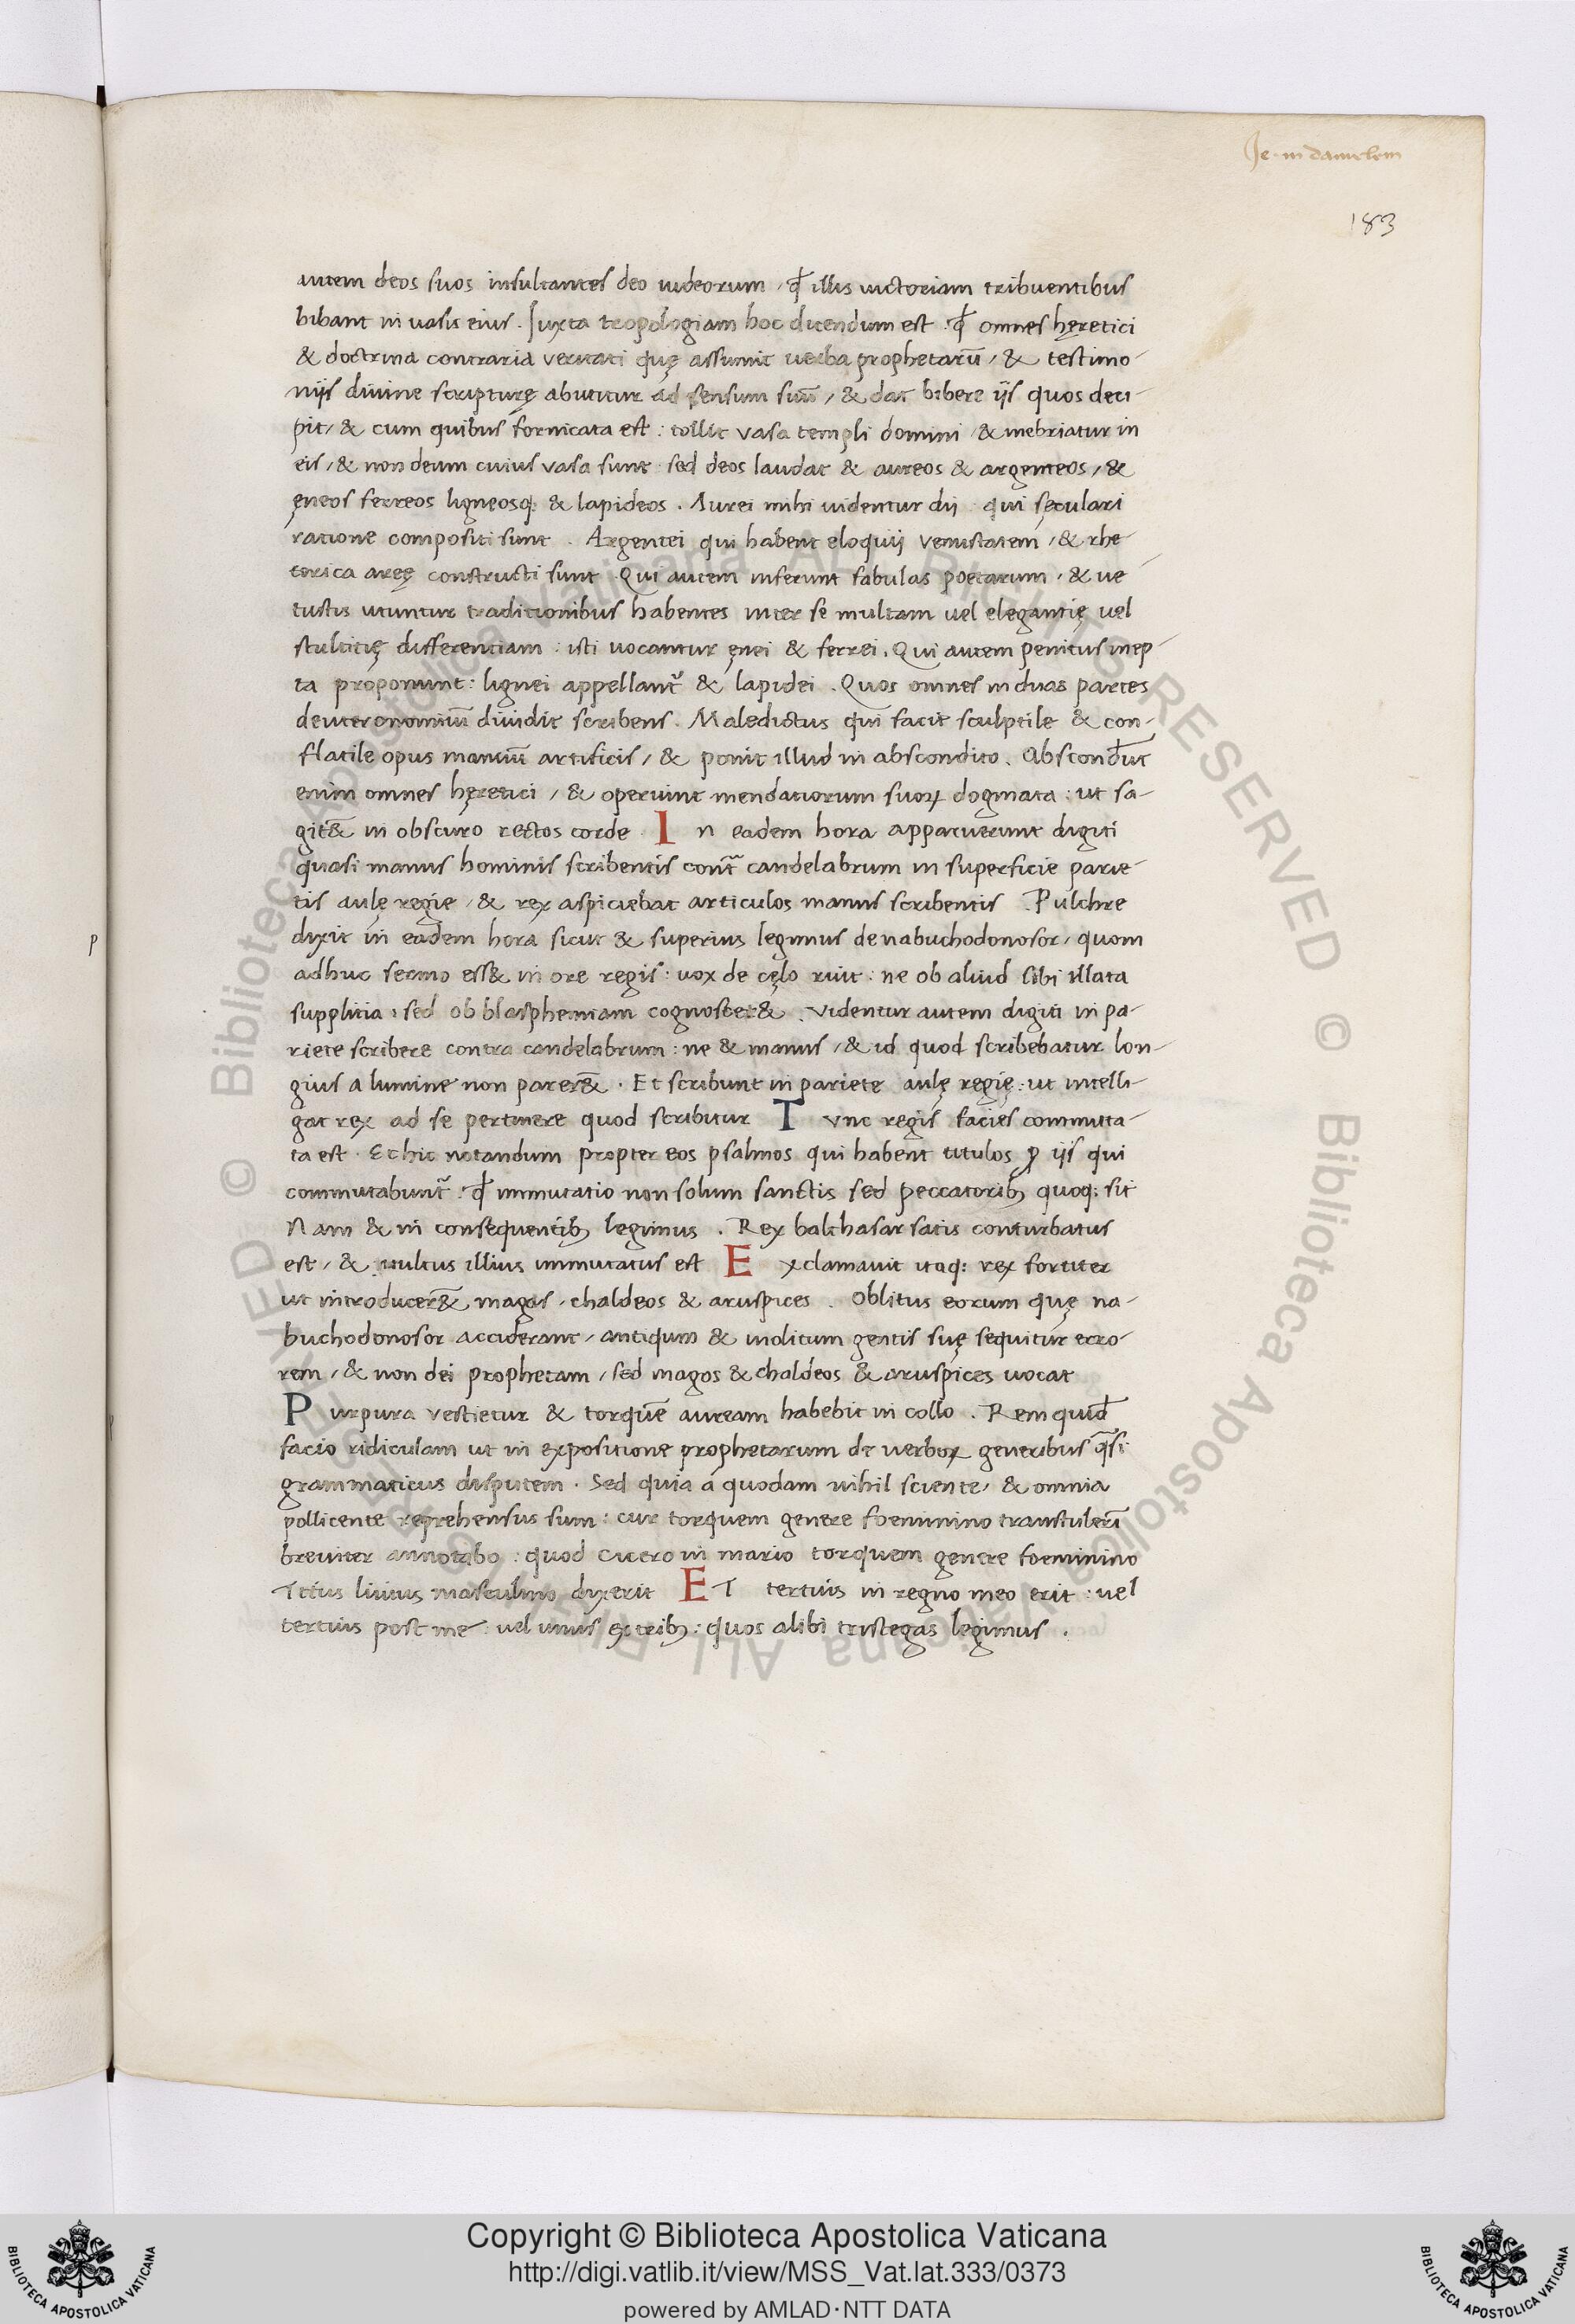 Ie. in danielem
183
autem deos suos insultantes deo iudeorum / qđ illis uictoriam tribuentibus
bibant in uasis eius. Iuxta tropologiam hoc dicendum est : qđ omnes hęretici
& doctrina contraria veritati quę assumit uerba prophetarū / & testimo-
nijs diuine scripturę abutitur ad sensum suū / & dat bibere ijs quos deci-
pit / & cum quibus fornicata est : tollit vasa templi domini / & inebriatur in
eis / & non deum cuius vasa sunt : sed deos laudat & aureos & argenteos / &
ęneos ferreos ligneosq; & lapideos . Aurei mihi uidentur dij qui sęculari
ratione compositi sunt . Argentei qui habent eloquij venustatem / & rhe-
torica areę constructi sunt . Qui autem inferunt fabulas poetarum / & ue
tustis utuntur traditionibus habentes inter se multam uel elegantię vel
stultitię differentiam : isti uocantur ęnei & ferrei . Qui autem penitus inep-
ta proponunt : lignei appellant᷑ & lapidei . Quos omnes in duas partes
deuteronomiū diuidit scribens . Maledictus qui facit sculptile & con-
flatile opus manuū artificis / & ponit illud in abscondito . Abscondūt
enim omnes hęretici / & operiunt mendatiorum suoꝝ dogmata : ut sa-
git̄& in obscuro rectos corde I n eadem hora apparuerunt digiti
quasi manus hominis scribentis cont᷑ candelabrum in superficie parie-
tis aulę regie / & rex aspiciebat articulos manus scribentis . Pulchre
dixit in eadem hora sicut & superius legimus de nabuchodonosor / quom
adhuc sermo ess& in ore regis : uox de cęlo ruit : ne ob aliud sibi illata
supplitia : sed ob blasphemiam cognoscer& . Videntur autem digiti in pa-
riete scribere contra candelabrum : ne & manus / & id quod scribebatur lon-
gius a lumine non parer& . Et scribunt in pariete aulę regię : ut intelli-
gat rex ad se pertinere quod scribitur T vnc regis facies commuta-
ta est . Et hic notandum propter eos psalmos qui habent titulos ꝓ ijs qui
commutabunt᷑ : qđ immutatio non solum sanctis sed peccatorib; quoq; sit
Nam & in consequentib; legimus . Rex balthasar satis conturbatus
est / & uultus illius immutatus est E xclamauit itaq; rex fortiter
ut introducer̄& magos / chaldeos & aruspices . Oblitus eorum quę na-
buchodonosor acciderant / antiqum & inolitum gentis suę sequitur erro-
rem / & non dei prophetam / sed magos & chaldeos & aruspices uocat
P urpura vestietur & torquē auream habebit in collo . Rem quidē
facio ridiculam ut in expositione prophetarum de uerboꝝ generibus q̄si
grammaticus disputem . Sed quia a quodam nihil sciente / & omnia
pollicente reprehensus sum : cur torquem genere foeminino transtulerī
breuiter annotabo : quod cicero in mario torquem genere foeminino
Titus liuius masculino dixerit E T tertius in regno meo erit : vel
tertius post me : uel unus ex trib; : quos alibi tristegas legimus .
p
Copyright © Biblioteca Apostolica Vaticana
http://digi.vatlib.it/view/MSS_Vat.lat.333/0373
powered by AMLAD·NTT DATA